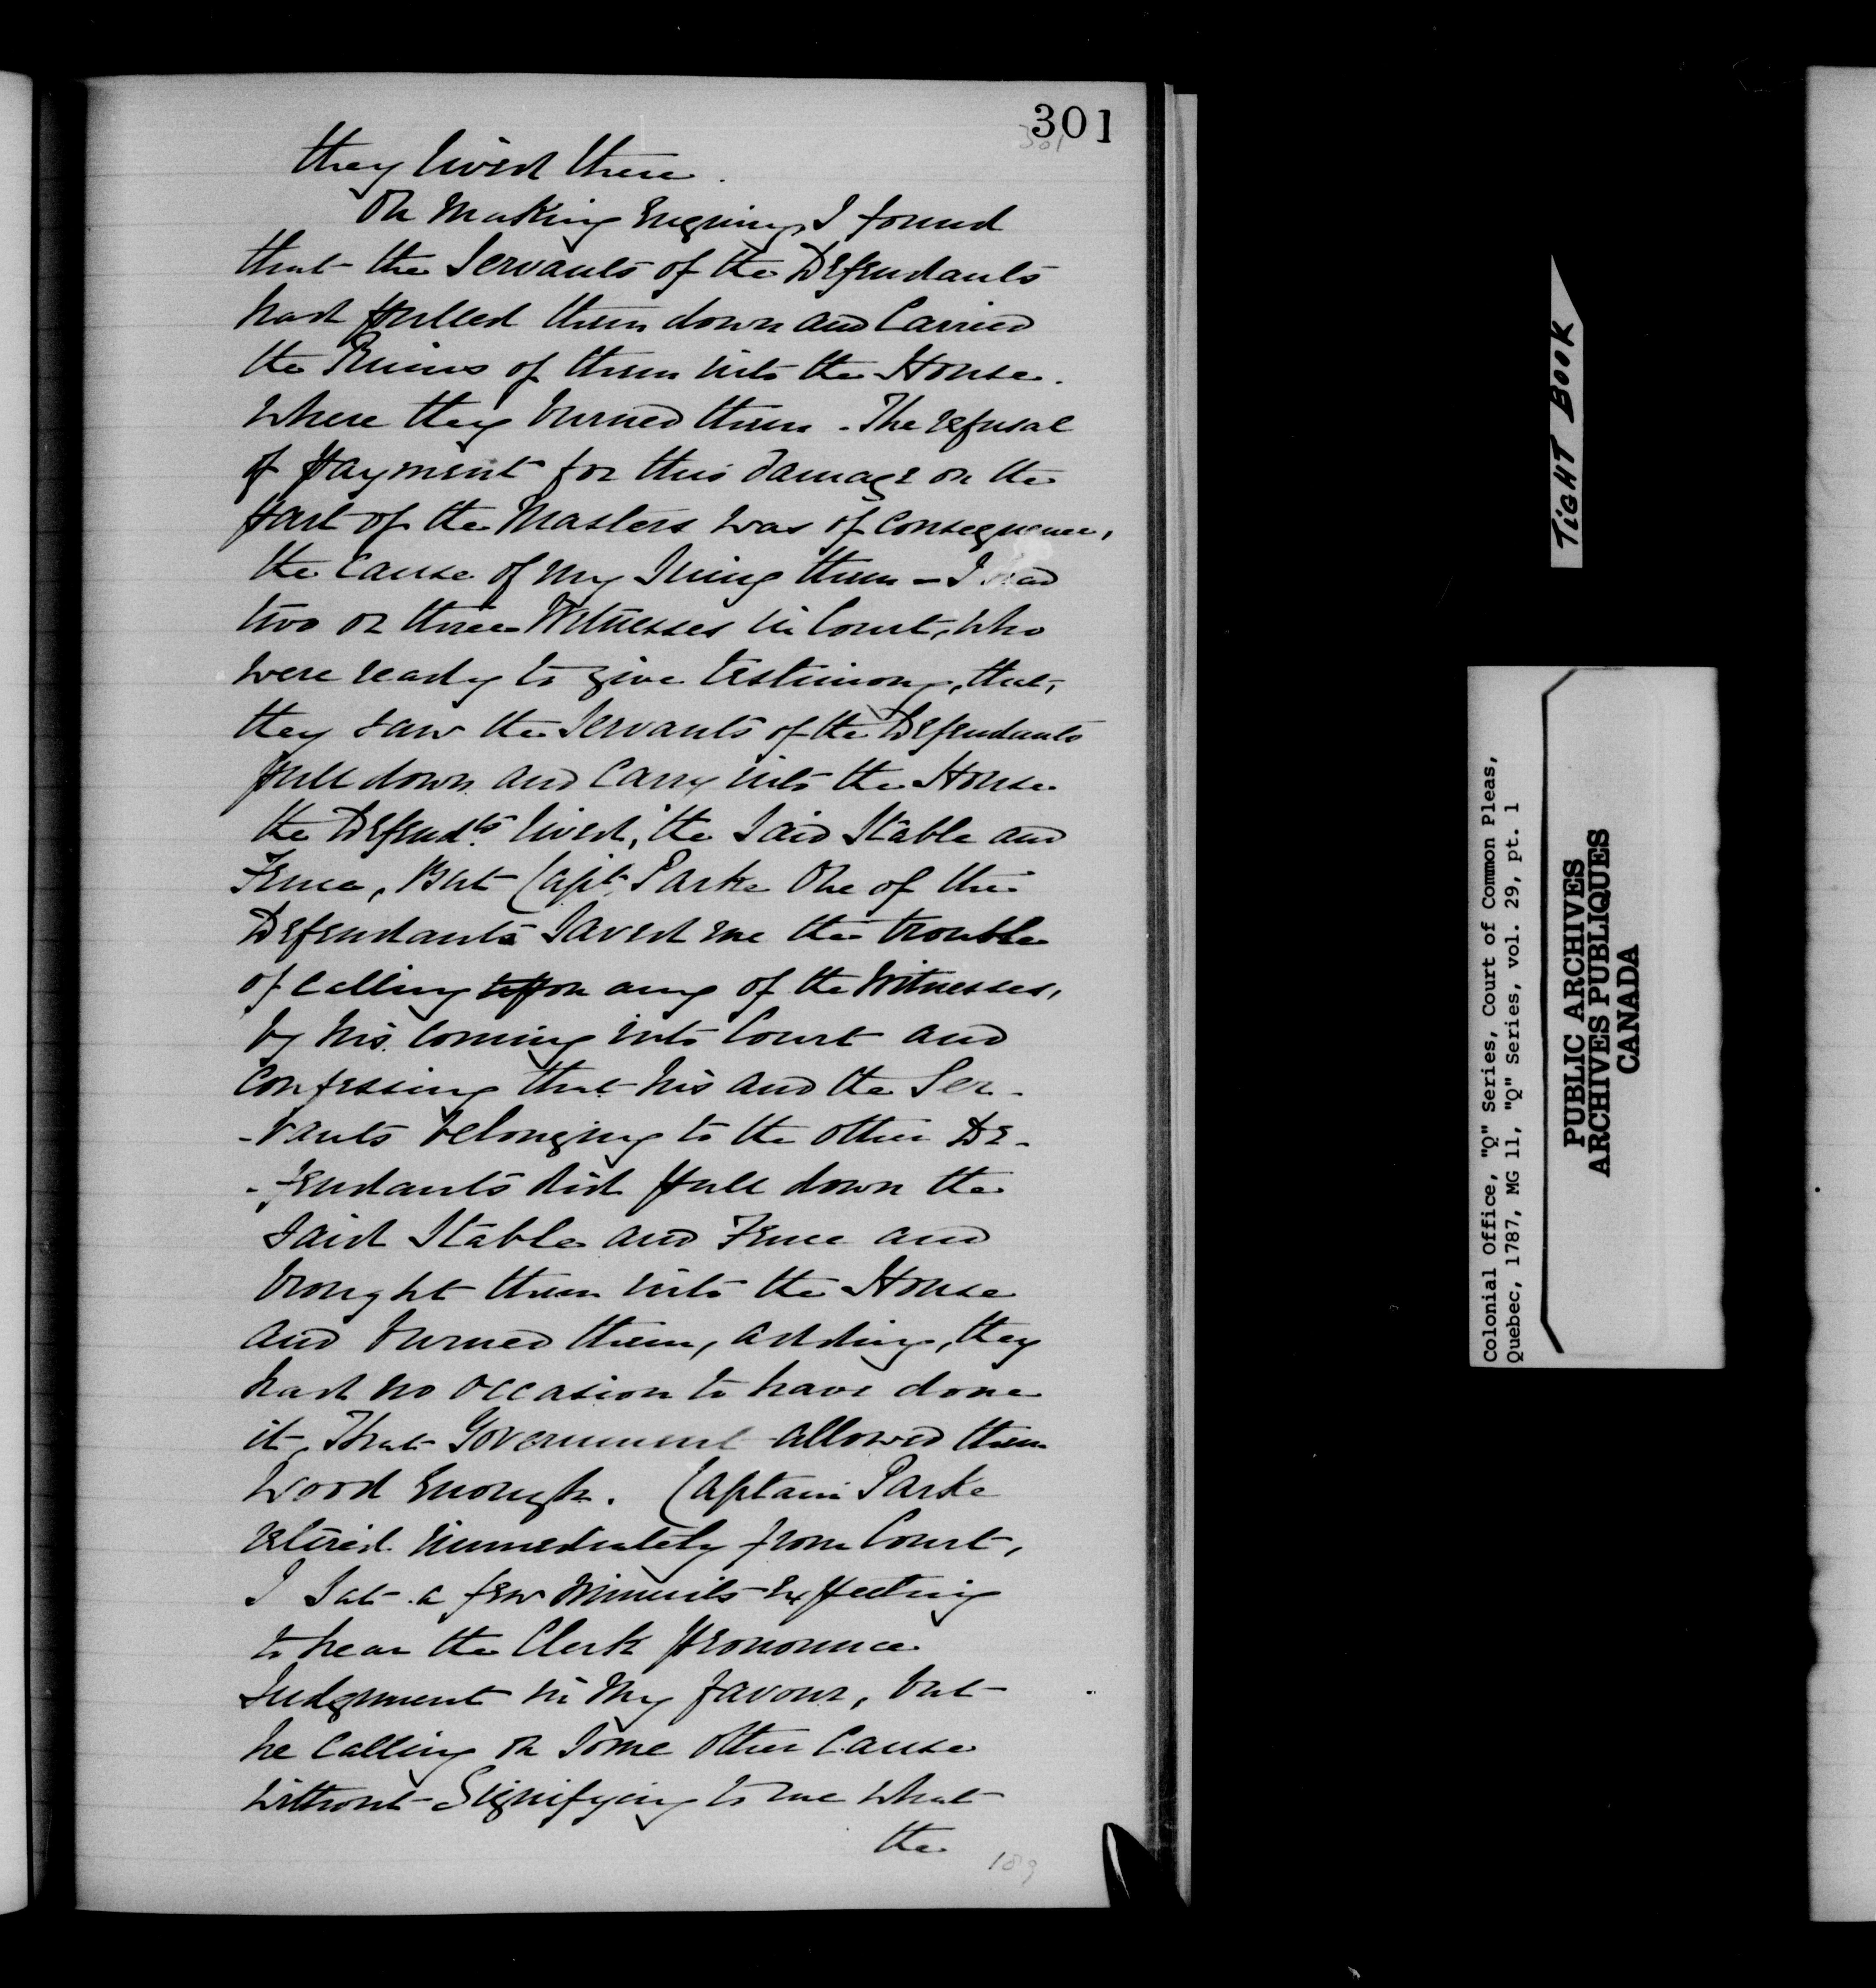 301
301
they lived there.
On Making Enquiry, I found
that the Servants of the Defendants
had pulled them down and Carried
the Ruins of them into the House.
Where they burned them. The refusal
of payment for this damage on the
part of the Masters was of consequence,
the Cause of my Suing them – I had
two or three Witnesses in Court, who
were ready to give testimony, that,
they saw the Servants of the Defendants
pull down and Carry into the House
the Defendts. lived, the said Stable and
Fence, But Capt. Parke One of the
Defendants Saved me the trouble
of calling upon any of the Witnesses,
by his coming into Court and
Confessing that his and the Ser-
-vants belonging to the other De-
-fendants did pull down the
said Stable and Fence and
brought them into the House
and burned them, adding, they
had no occasion to have done
it, That Government allowed them
Wood enough. Captain Parke
retired immediately from Court,
I Sat a few Minuits expecting
to hear the Clerk pronounce
Judgment in My favour, but
he Calling on Some other Cause
without Signifying to me what
the
189
TIGHT BOOK
Colonial Office, "Q" Series, Court of Common Pleas,
Quebec, 1787, MG 11, "Q" Series, vol. 29, pt. 1
PUBLIC ARCHIVES
ARCHIVES PUBLIQUES
CANADA